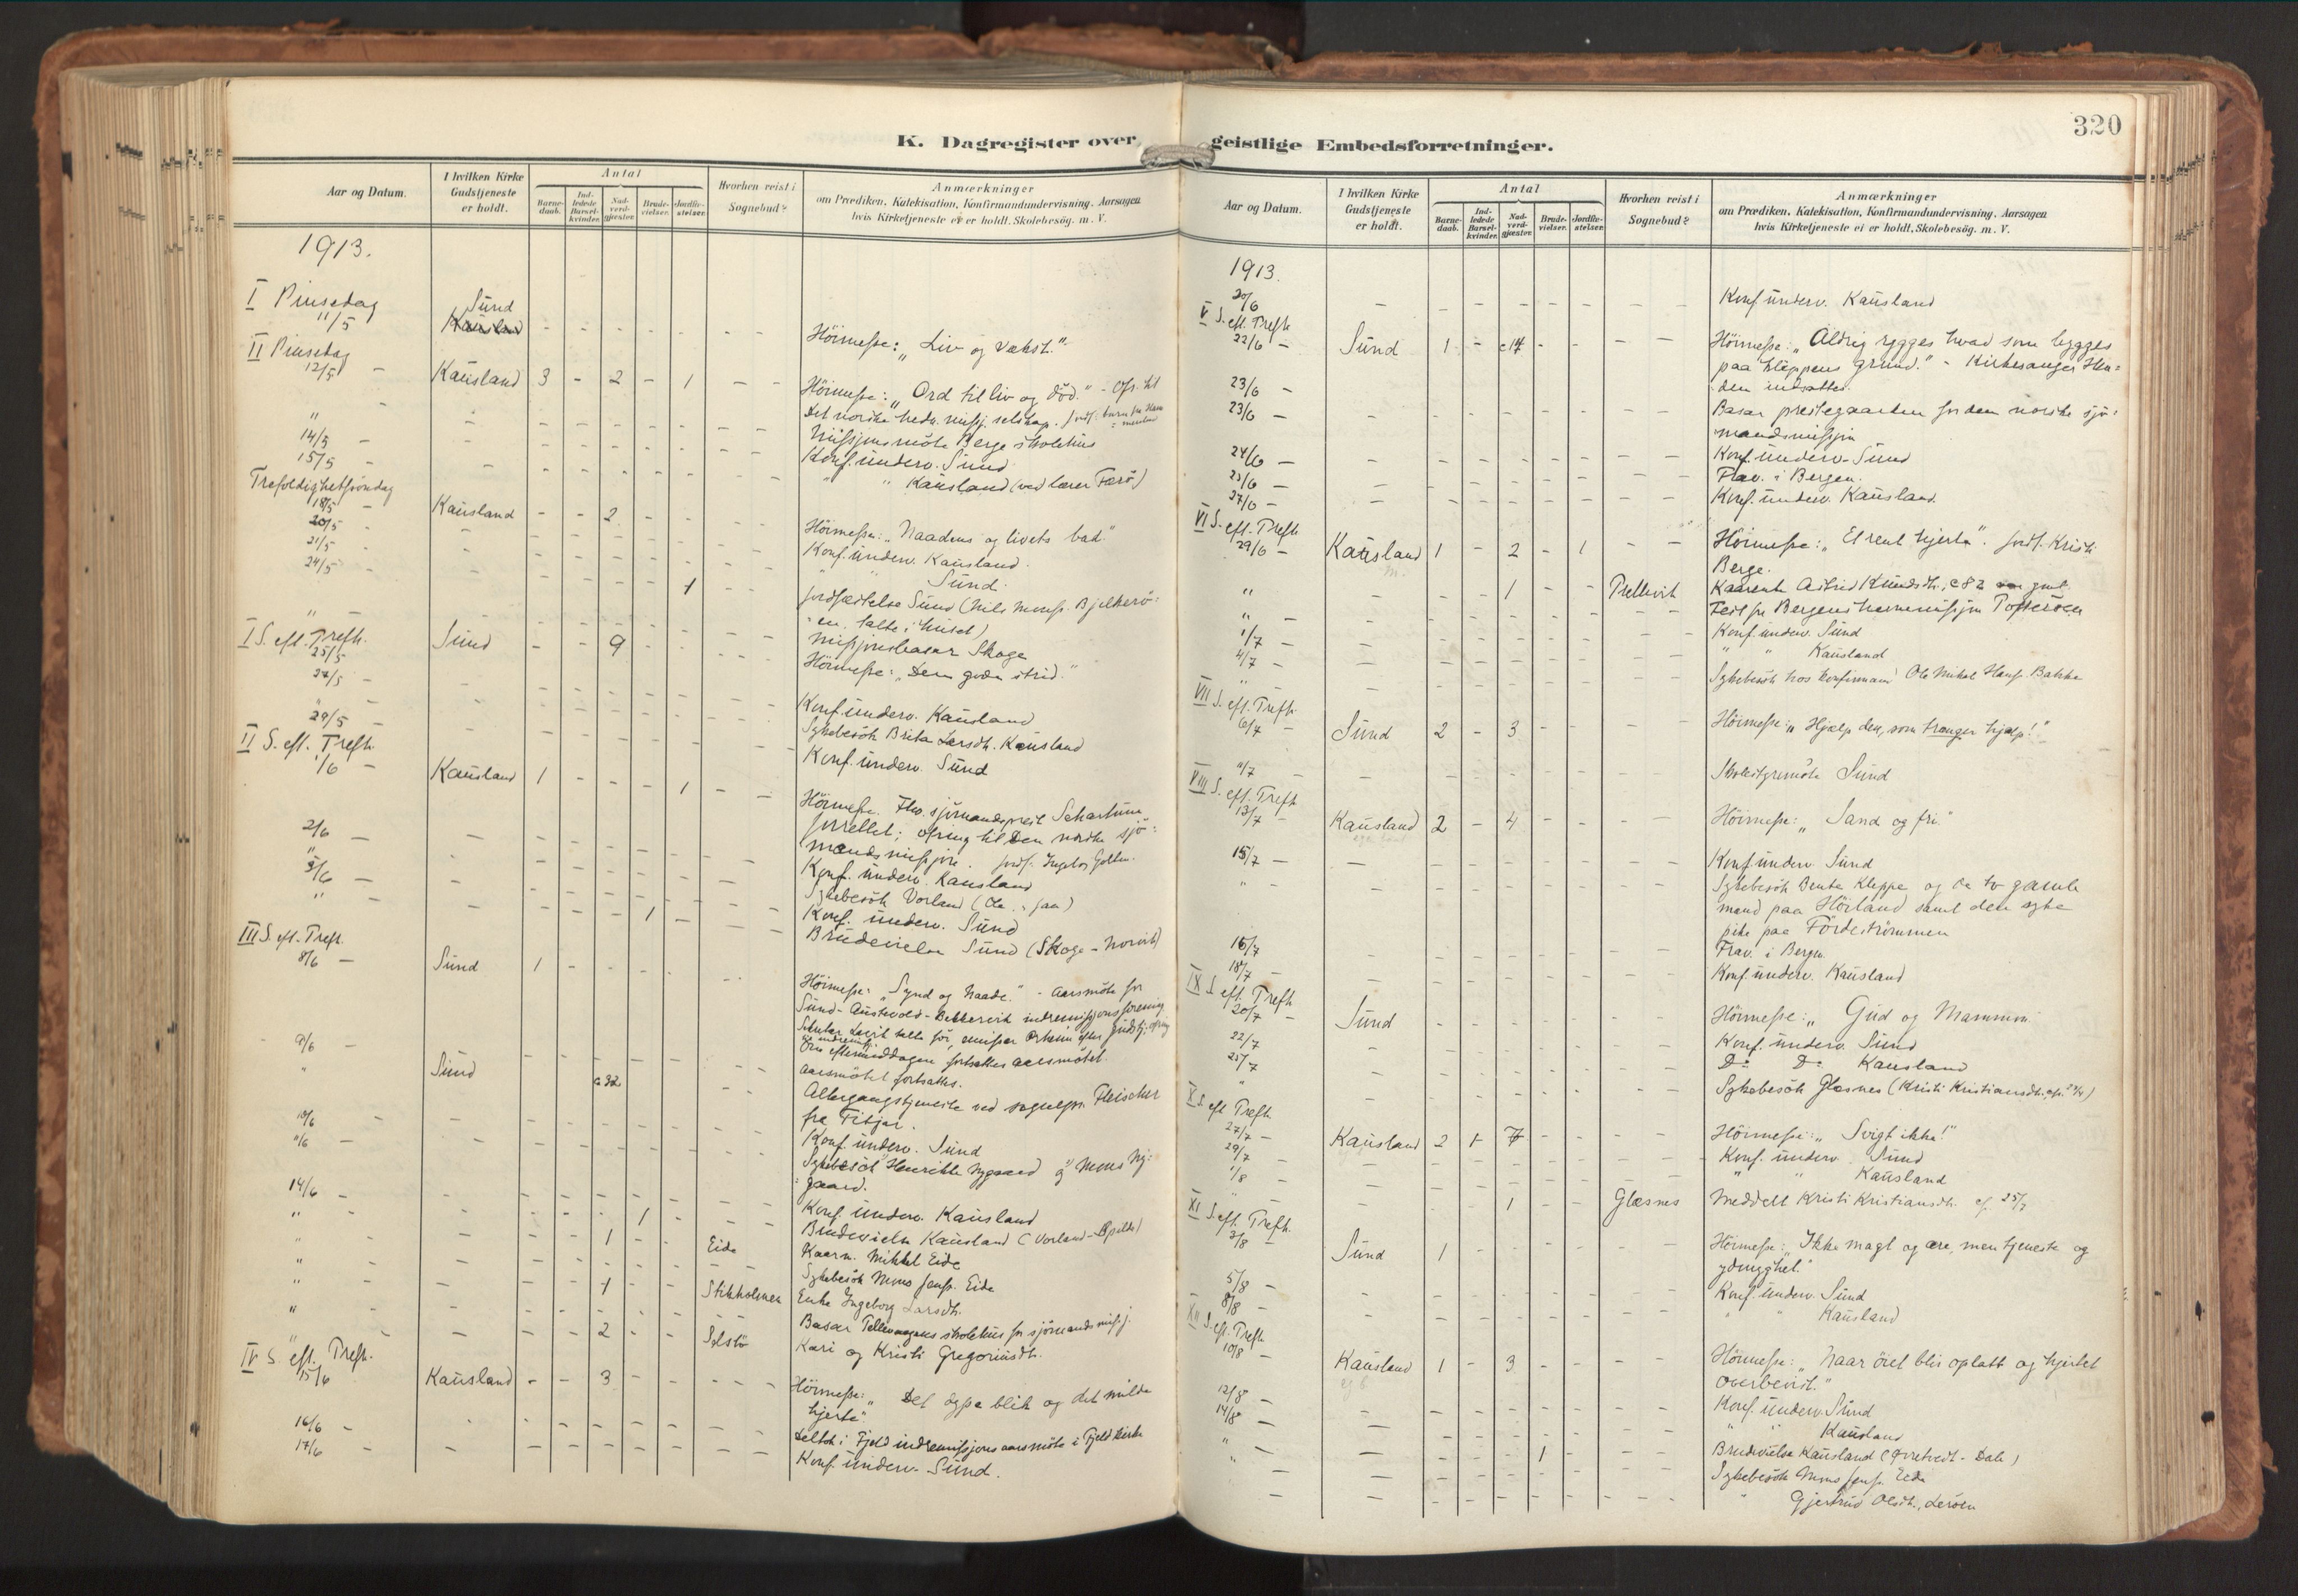 K. Dagregister over
Aar og Datum.
I hvilken Kirke Gudstjeneste er holdt.
Antal
Barne-daab.
Ind-ledede Barsel-kvinder.
Nad-verd-gjester.
Brude-vielser.
Jordfæ-stelser.
Hvorhen reist i Sognebud?
Anmærkninger
om Prædiken, Katekisation, Konfirmandundervisning, Aarsagen
hvis Kirketjeneste ei er holdt, Skolebesög. m. V.
1913.
I Pinsedag
11/5 Sund - - - - - - - Höimesse: "Liv og vækst."
II Pinsedag
12/5 - Kausland 3 - 2 - 1 - - Höimesse: "Ord til liv og död." - Ofr. til
Det norske hedn. missj. selskap.
" Missjonsmöte Berge skolehus
14/5 - Konf. underv. Sund
15/5 - " " Kausland (ved lærer Færö)
Trefoldighetssöndag
18/5 - Kausland - - 2 - - Höimesse: "Naadens og livets bad"
20/5 - Konf. underv. Kausland.
21/5 - " " Sund.
24/5 - 1 - - Jordfæstelse Sund (Nils Monss. Bjelkerö-
en, talte i huset)
" Missjonsbasar Skoge
I S. eft. Trefh.
25/5 Sund - - 9 - - Höimesse: "Den gode strid."
27/5 - Konf. underv. Kausland
" - Sykebesök Brita Larsdh. Kausland
29/5 - Konf. underv. Sund
II S. eft. Trefh.
1/6 - Kausland 1 - - - 1 - - Höimesse. Fhv. sjömandsprest Schartum
forrettet; ofring til Den norske sjö-
mandsmissjon.
2/6 - Konf. underv. Kausland
" Sykebesök Vorland
3/6 - Konf. underv. Sund
" 1 - Brudevielse Sund (Skoge - Norvik)
III S. eft. Trefh.
8/6 - Sund 1 - Höimesse: "Synd og Naade." - Aarsmöte for
Sund - Austevold - Bekkervik indremissjonsforening
Om eftermiddagen fortsattes aarsmötet.
9/6 - Aarsmötet fortsattes.
" Sund c 32 Altergangstjeneste ved sognepr. Fleischer
fra Fitjar.
10/6 Konf. underv. Sund
11/6 - Sykebesök Henrikke Nygaard og Mons Ny-
gaard.
14/6 - Konf. underv. Kausland
" 1 - Brudevielse Kausland
" 1 - - Eide Kaarm. Mikkel Eide
" Sykebesök Mons Jenss. Eide
" 1 - - Stikholmen Enke Ingeborg Larsdh.
" Basar Tellevaagens skolehus for sjömandsmissj.
" 2 - - Selstö Kari og Kristi Gregoriusdh.
IV S. eft. Trefh.
15/6 Kausland - - 3 - - - - Höimesse: "Det dype blik og det milde
hjerte".
16/6 - Deltok i Fjeld indremissjons aarsmöte i Fjeld kirke
17/6 - Konf. underv. Sund.
320
geistlige Embedsforretninger.
Aar og Datum.
I hvilken Kirke Gudstjeneste er holdt.
Antal
Barne-daab.
Ind-ledede Barsel-kvinder.
Nad-verd-gjester.
Brude-vielser.
Jordfæ-stelser.
Hvorhen reist i Sognebud?
Anmærkninger
om Prædiken, Katekisation, Konfirmandundervisning, Aarsagen
hvis Kirketjeneste ei er holdt, Skolebesög. m. V.
1913.
20/6 - Konf. underv. Kausland
V S. eft. Trefh.
22/6 - Sund 1 - c 14 - - - - Höimesse: "Aldrig rygges hvad som bygges
paa klippens grund." - Kirkesanger Hen-
den indsattes.
23/6 -
23/6 - Basar prestegaarden for den norske sjö-
mandsmissjon
24/6 - Konf. underv. Sund
25/6 - Frav. i Bergen.
27/6 - Konf. underv. Kausland.
VI S. eft. Trefh.
29/6 - Kausland 1 - 2 - 1 - - Höimesse: "Et rent hjerte". Jordf. Kristi
Berge.
" 1 - - Pollevik Kaarenke Astrid Knudsdh.
" Fest for Bergens hjemmemissjon Tofteröen
1/7 - Konf. underv. Sund
4/7 - " " Kausland
" Sykebesök hos konfirmand Ole Mikal Hanss. Bakke
VII S. eft. Trefh.
6/7 - Sund 2 - 3 - Höimesse: "Hjælp den, som trænger hjælp!"
11/7 - Skolestyremöte Sund
VIII S. eft. Trefh
13/7 - Kausland 2 - 4 - - Höimesse: "Sand og fri."
15/7 - Konf. underv. Sund
" Sykebesök Bente Kleppe og de to gamle
mænd paa Hörland samt den syke
pike paa Fördeströmmen
16/7 Frav. i Bergen
18/7 - Konf. underv. Kausland
IX S. eft. Trefh
20/7 - Sund - - - Höimesse: "Gud og Mammon.
22/7 Konf. underv. Sund
25/7 Do Do Kausland
" Sykebesök Glæsnes (Kristi Kristiansdh.
X S. eft Trefh.
27/7 - Kausland 2 + 7 - - Höimesse: "Svigt ikke!"
29/7 - Konf. underv. Sund
1/8 - " " Kausland
" 1 - - Glæsnes Meddelt Kristi Kristiansdh. cf. 25/7
XI S. eft. Trefh.
3/8 - Sund 1 - Höimesse: "Ikke magt og ære, men tjeneste og
ydmyghet."
5/8 - Konf. underv. Sund
8/8 - " " Kausland
XII S. eft. Trefh
10/8 - Kausland 1 - 3 - - - - Höimesse: "Naar öiet blir oplatt og hjertet
overbevist."
12/8 - Konf. underv. Sund
14/8 - " " Kausland
" 1 - Brudevielse Kausland
" Sykebesök Mons Jenss. Eide
" Gjertrud Olsdh., Leröen